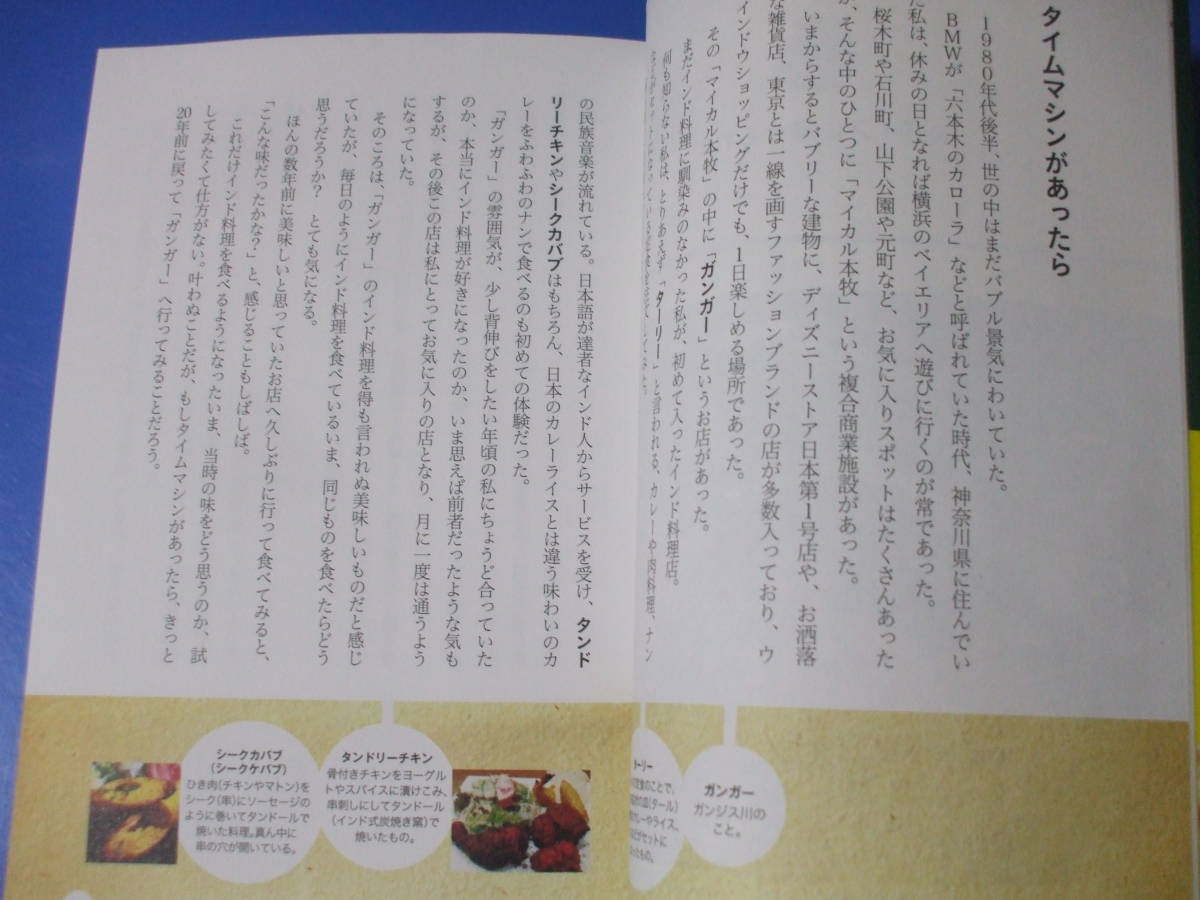 タイムマシンがあったら
1980年代後半、世の中はまだバブル景気にわいていた。
BMWが「六本木のカローラ」などと呼ばれていた時代、神奈川県に住んでい
た私は、休みの日となれば横浜のベイエリアへ遊びに行くのが常であった。
桜木町や石川町、山下公園や元町など、お気に入りスポットはたくさんあった
が、そんな中のひとつに「マイカル本牧」という複合商業施設があった。
いまからするとバブリーな建物に、ディズニーストア日本第1号店や、お洒落
な雑貨店、東京とは一線を画すファッションブランドの店が多数入っており、ウ
インドウショッピングだけでも、1日楽しめる場所であった。
その「マイカル本牧」の中に「ガンガー」というお店があった。
まだインド料理に馴染みのなかった私が、初めて入ったインド料理店。
何も知らない私は、とりあえず「ターリー」と言われる、カレーや肉料理、ナン
の民族音楽が流れている。日本語が達者なインド人からサービスを受け、タンド
リーチキンやシークカバブはもちろん、日本のカレーライスとは違う味わいのカ
レーをふわふわのナンで食べるのも初めての体験だった。
「ガンガー」の雰囲気が、少し背伸びをしたい年頃の私にちょうど合っていた
のか、本当にインド料理が好きになったのか、いま思えば前者だったような気も
するが、その後この店は私にとってお気に入りの店となり、月に一度は通うよう
になっていた。
そのころは、「ガンガー」のインド料理を得も言われぬ美味しいものだと感じ
ていたが、毎日のようにインド料理を食べているいま、同じものを食べたらどう
思うだろうか？ とても気になる。
ほんの数年前に美味しいと思っていたお店へ久しぶりに行って食べてみると、
「こんな味だったかな？」と、感じることもしばしば。
これだけインド料理を食べるようになったいま、当時の味をどう思うのか、試
してみたくて仕方がない。叶わぬことだが、もしタイムマシンがあったら、きっと
20年前に戻って「ガンガー」へ行ってみることだろう。
ガンガー
ガンジス川の
こと。
ターリー
定食のことで、
(ダール)
カレーやライス、
セットに
なったもの。
タンドリーチキン
骨付きチキンをヨーグル
トやスパイスに漬けこみ、
串刺しにしてタンドール
(インド式炭焼き窯)で
焼いたもの。
シークカバブ
(シークケバブ)
ひき肉(チキンやマトン)を
シーク(串)にソーセージの
ように巻いてタンドールで
焼いた料理。真ん中に
串の穴が開いている。